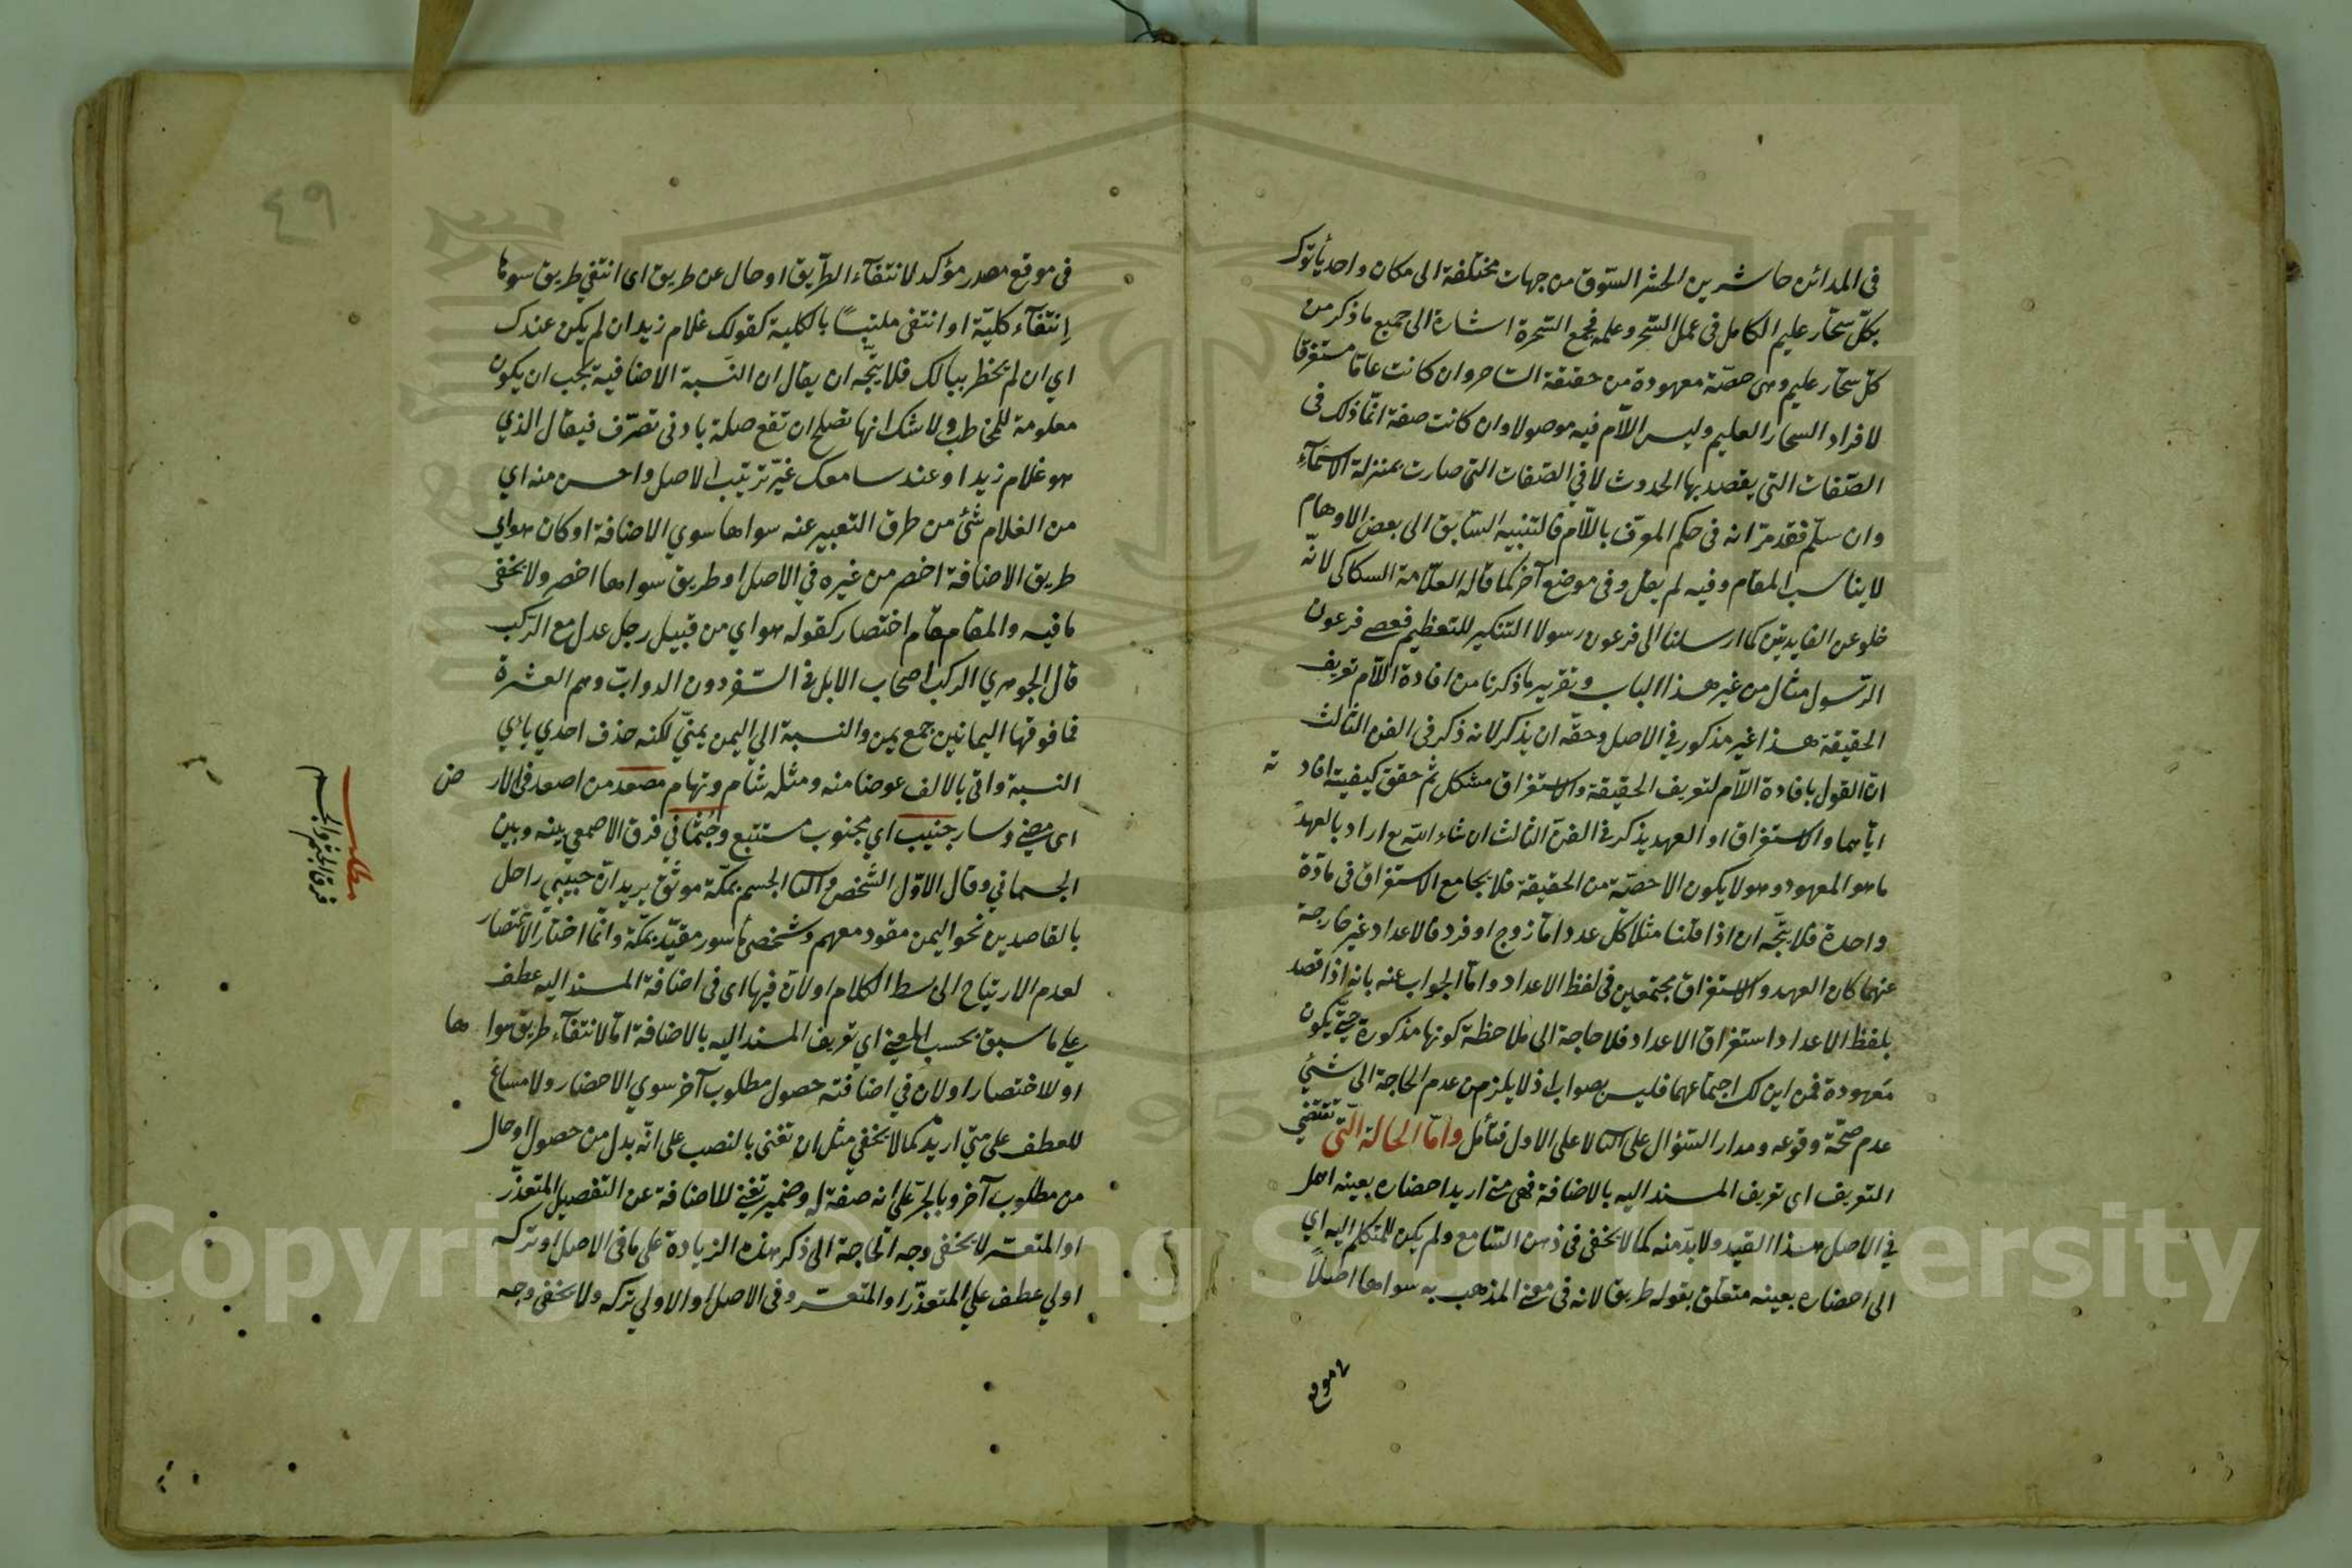 في المدائن حاشرين الحشر السّوق من جهات مختلفة الى مكان واحد يأتوك
بكلّ سحّار عليم الكامل فى عمل السّحر وعلمه فجمع السّحرة اشارة الى جميع ما ذكر من
كلّ سحّار عليم وهى حصّة معهودة من حقيقة السّاحر وان كانت عامّا مستغرقا
لافراد السحّار العليم وليس اللّام فيه موصولا وان كانت صفة انّما ذلك فى
الصّفات التى يقصد بها الحدوث لا في الصّفات التى صارت بمنزلة الاسمآءِ
وان سلّم فقد مرّ انه فى حكم المعرّف باللّام فالتنبيه السّابق الى بعض الاوهام
لا يناسب المقام وفيه لم يقل وفى موضع آخر كما قاله العلّامة السكاكى لانّه
خلو عن الفايدتين كما ارسلنا الى فرعون رسولا التنكير للتعظيم فعصى فرعون
الرّسول مثال من غير هذا الباب وتقرير ما ذكرنا من افادة اللّام تعريف
الحقيقة هذا غير مذكور في الاصل وحقّه ان يذكر لانه ذكر فى الفن الثالث
انّ القول بافادة اللّام لتعريف الحقيقة والاستغراق مشكل ثم حقق كيفية افاد ته
ايّاهما والاستغراق او العهد يذكر فى الفنّ الثالث ان شاء الله تع اراد بالعهد
ما هو المعهود وهو لا يكون الا حصّة من الحقيقة فلا يجامع الاستغراق فى مادّة
واحدة فلا يتّجه ان اذا قلنا مثلا كلّ عدد امّا زوج او فرد فالاعداد غير خارجة
عنهما كان العهد والاستغراق مجتمعين فى لفظ الاعداد وامّا الجواب عنه بانه اذا قصد
بلفظ الاعداد استغراق الاعداد فلا حاجة الى ملاحظة كونها مذكورة حتّى يكون
معهودة فمن اين لك اجتماعهما فليس بصواب اذ لا يلزم من عدم الحاجة الى شئ
عدم صحّة وقوعه ومدار السّؤال على الثا لا على الاول فتأمّل وامّا الحالة الّتى تقتضى
التعريف اى تعريف المسند اليه بالاضافة فهى متى اريد احضاره بعينه اهمل
فى الاصل هذا القيد ولا بدّ منه كما لا يخفى فى ذهن السّامع ولم يكن للمتكلم اليه اي
الى احضاره بعينه متعلّق بقوله طريق لانه فى معنى المذهب به سواها اصلاً
فى موقع
فى موقع مصدر مؤكد لانتفآء الطّريق او حال عن طريق اى انتفي طريق سواها
اِنتفآء كليّة او انتفى ملتبسًا بالكلية كقولك غلام زيد ان لم يكن عندك
اي ان لم يخطر ببالك فلا يتّجه ان يقال ان النّسبة الاضافية يجب ان يكون
معلومة للمخاطب ولا شك انها تصلح ان تقع صلة بادنى تصرّف فيقال الذي
هو غلام زيد او عند سامعك غيّر ترتيب الاصل واحسن منه اي
من الغلام شئ من طرق التعبير عنه سواها سوي الاضافة او كان هو اي
طريق الاضافة اخصر من غيره في الاصل او طريق سواها اخصر ولا يخفى
ما فيه والمقام مقام اختصار كقوله هواي من قبيل رجل عدل مع الرّكب
قال الجوهري الركب اصحاب الابل فى السّفر دون الدوابّ وهم العشرة
فما فوقها اليمانين جمع يمن والنسبة الى اليمن يمنىّ لكنه حذف احدي يائي
النسبة واتى بالالف عوضا منه ومثله شام وتهام مصعد من اصعد فى الار ض
اى مضى وسار جنيب اي مجنوب مستتبع وجُثماني فرق الاصمعي بينه وبين
الجسماني وقال الاوّل الشّخص والثا الجسم بمكّة موثَق يريد انّ حبيبي راحل
بالقاصدين نحو اليمن مقود معهم وشخصى مأسور مقيّد بمكّة وانّما اختار الاختصار
لعدم الارتياح الى بسط الكلام او لانّ فيها اى فى اضافة المسند اليه عطف
على ما سبق بحسب المعنى اي تعريف المسند اليه بالاضافة امّا لانتفآء طريق سوا ها
او للاختصار او لان في اضافته حصول مطلوب آخر سوي الاحضار ولا مساغ
للعطف على متى اريد كما لا يخفي مثل ان تغنى بالنصب على انّه بدل من حصول او حال
من مطلوب آخر وبالجرّ على انه صفة له وضمير تغنى للاضافة عن التفصيل المتعذّر
او المتعسّر لا يخفى وجه الحاجة الى ذكر هذه الزيادة على ما فى الاصل او تركه
اولي عطف علي المتعذّر او المتعسّر وفى الاصل او الاولي تركه ولا يخفى وجه
مطلب
فرق الجثم والجسم
٤٩
Copyright © King Saud University